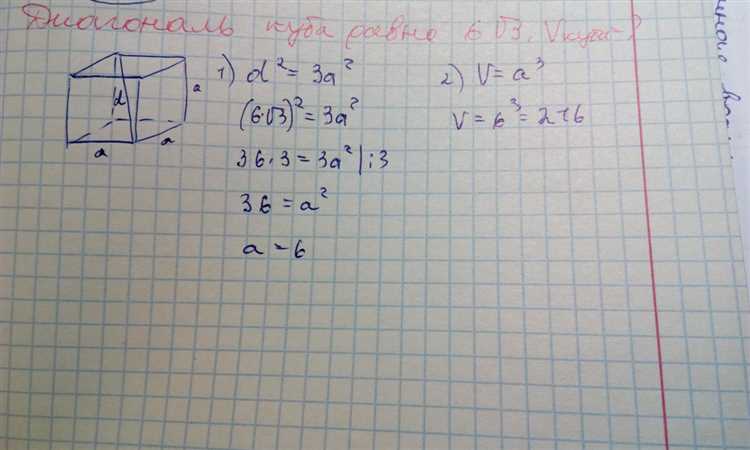 Диагональ куба равно 6√3. Vкуба-?
d
a
a
a
1) d² = 3a²
(6·√3)² = 3a²
36·3 = 3a² |:3
36 = a²
a = 6
2) V = a³
V = 6³ = 216